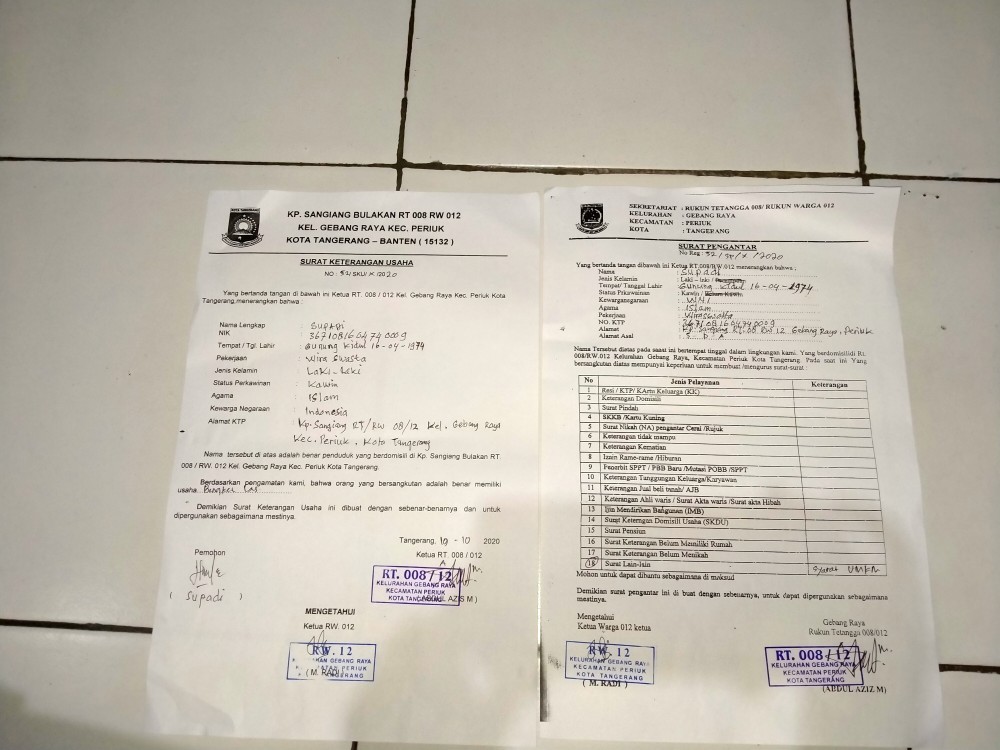 KP. SANGIANG BULAKAN RT 008 RW 012
KEL. GEBANG RAYA KEC. PERIUK
KOTA TANGERANG – BANTEN ( 15132 )
SURAT KETERANGAN USAHA
NO : 52/ SKU/ X /2020
Yang bertanda tangan di bawah ini Ketua RT. 008 / 012 Kel. Gebang Raya Kec. Periuk Kota
Tangerang,menerangkan bahwa :
Nama Lengkap : SUPADI
NIK : 3671081604740009
Tempat / Tgl. Lahir : Gunung Kidul 16-04-1974
Pekerjaan : Wira Swasta
Jenis Kelamin : Laki-Laki
Status Perkawinan : Kawin
Agama : Islam
Kewarga Negaraan : Indonesia
Alamat KTP : Kp. Sangiang RT/RW 08/12 Kel. Gebang Raya
Kec. Periuk . Kota Tangerang
Nama tersebut di atas adalah benar penduduk yang berdomisili di Kp. Sangiang Bulakan RT.
008 / RW. 012 Kel. Gebang Raya Kec. Periuk Kota Tangerang.
Berdasarkan pengamatan kami, bahwa orang yang bersangkutan adalah benar memiliki
usaha Bengkel Las
Demikian Surat Keterangan Usaha ini dibuat dengan sebenar-benarnya dan untuk
dipergunakan sebagaimana mestinya.
Tangerang, 10 - 10 2020
Pemohon
Ketua RT. 008 / 012
RT. 008 / 12
KELURAHAN GEBANG RAYA
KECAMATAN PERIUK
KOTA TANGERANG
( Supadi )
(ABDUL AZIS M )
MENGETAHUI
Ketua RW. 012
RW. 12
GEBANG RAYA
PERIUK
TANGERANG
( M. RADI )
SEKRETARIAT : RUKUN TETANGGA 008/ RUKUN WARGA 012
KELURAHAN : GEBANG RAYA
KECAMATAN : PERIUK
KOTA : TANGERANG
SURAT PENGANTAR
No Reg : 52 / /X /2020
Yang bertanda tangan dibawah ini Ketua RT.008/RW.012 menerangkan bahwa ;
Nama : SUPADI
Jenis Kelamin : Laki – laki / Perempuan
Tempat/ Tanggal Lahir : Gunung Kidul 16-04-1974
Status Perkawinan : Kawin / Belum Kawin
Kewarganegaraan : WNI
Agama : Islam
Pekerjaan : Wiraswasta
NO. KTP : 3671081604740009
Alamat : Kp. Sangiang RT. 08 RW 12 Gebang Raya. Periuk
Alamat Asal : S D A
Nama Tersebut diatas pada saat ini bertempat tinggal dalam lingkungan kami. Yang berdomilidi RT.
008/RW.012 Kelurahan Gebang Raya, Kecamatan Periuk Kota Tangerang. Pada saat ini Yang
bersangkutan diatas mempunyai keperluan untuk membuat /mengurus surat-surat :
No Jenis Pelayanan Keterangan
1 Resi / KTP/ KArtu Keluarga (KK)
2 Keterangan Domisili
3 Surat Pindah
4 SKKB /Kartu Kuning
5 Surat Nikah (NA) pengantar Cerai /Rujuk
6 Keterangan tidak mampu
7 Keterangan Kematian
8 Izain Rame-rame /Hiburan
9 Penerbit SPPT / PBB Baru /Mutasi POBB /SPPT
10 Keterangan Tanggungan Keluarga/Karyawan
11 Keterangan Jual beli tanah/ AJB
12 Keterangan Ahli waris / Surat Akta waris /Surat akta Hibah
13 Ijin Mendirikan Bangunan (IMB)
14 Surat Keterngan Domisili Usaha (SKDU)
15 Surat Pensiun
16 Surat Keterangan Belum Memiliki Rumah
17 Surat Keterangan Belum Menikah
18 Surat Lain-lain Syarat UMKM
Mohon untuk dapat dibantu sebagaimana di maksud
Demikian surat pengantar ini di buat dengan sebenarnya, untuk dapat dipergunakan sebagaimana
mestinya.
Mengetahui
Ketua Warga 012 ketua
Gebang Raya
Rukun Tetangga 008/012
RW. 12
KELURAHAN GEBANG RAYA
KECAMATAN PERIUK
KOTA TANGERANG
( M. RADI )
RT. 008 / 12
KELURAHAN GEBANG RAYA
KECAMATAN PERIUK
KOTA TANGERANG
(ABDUL AZIZ M)